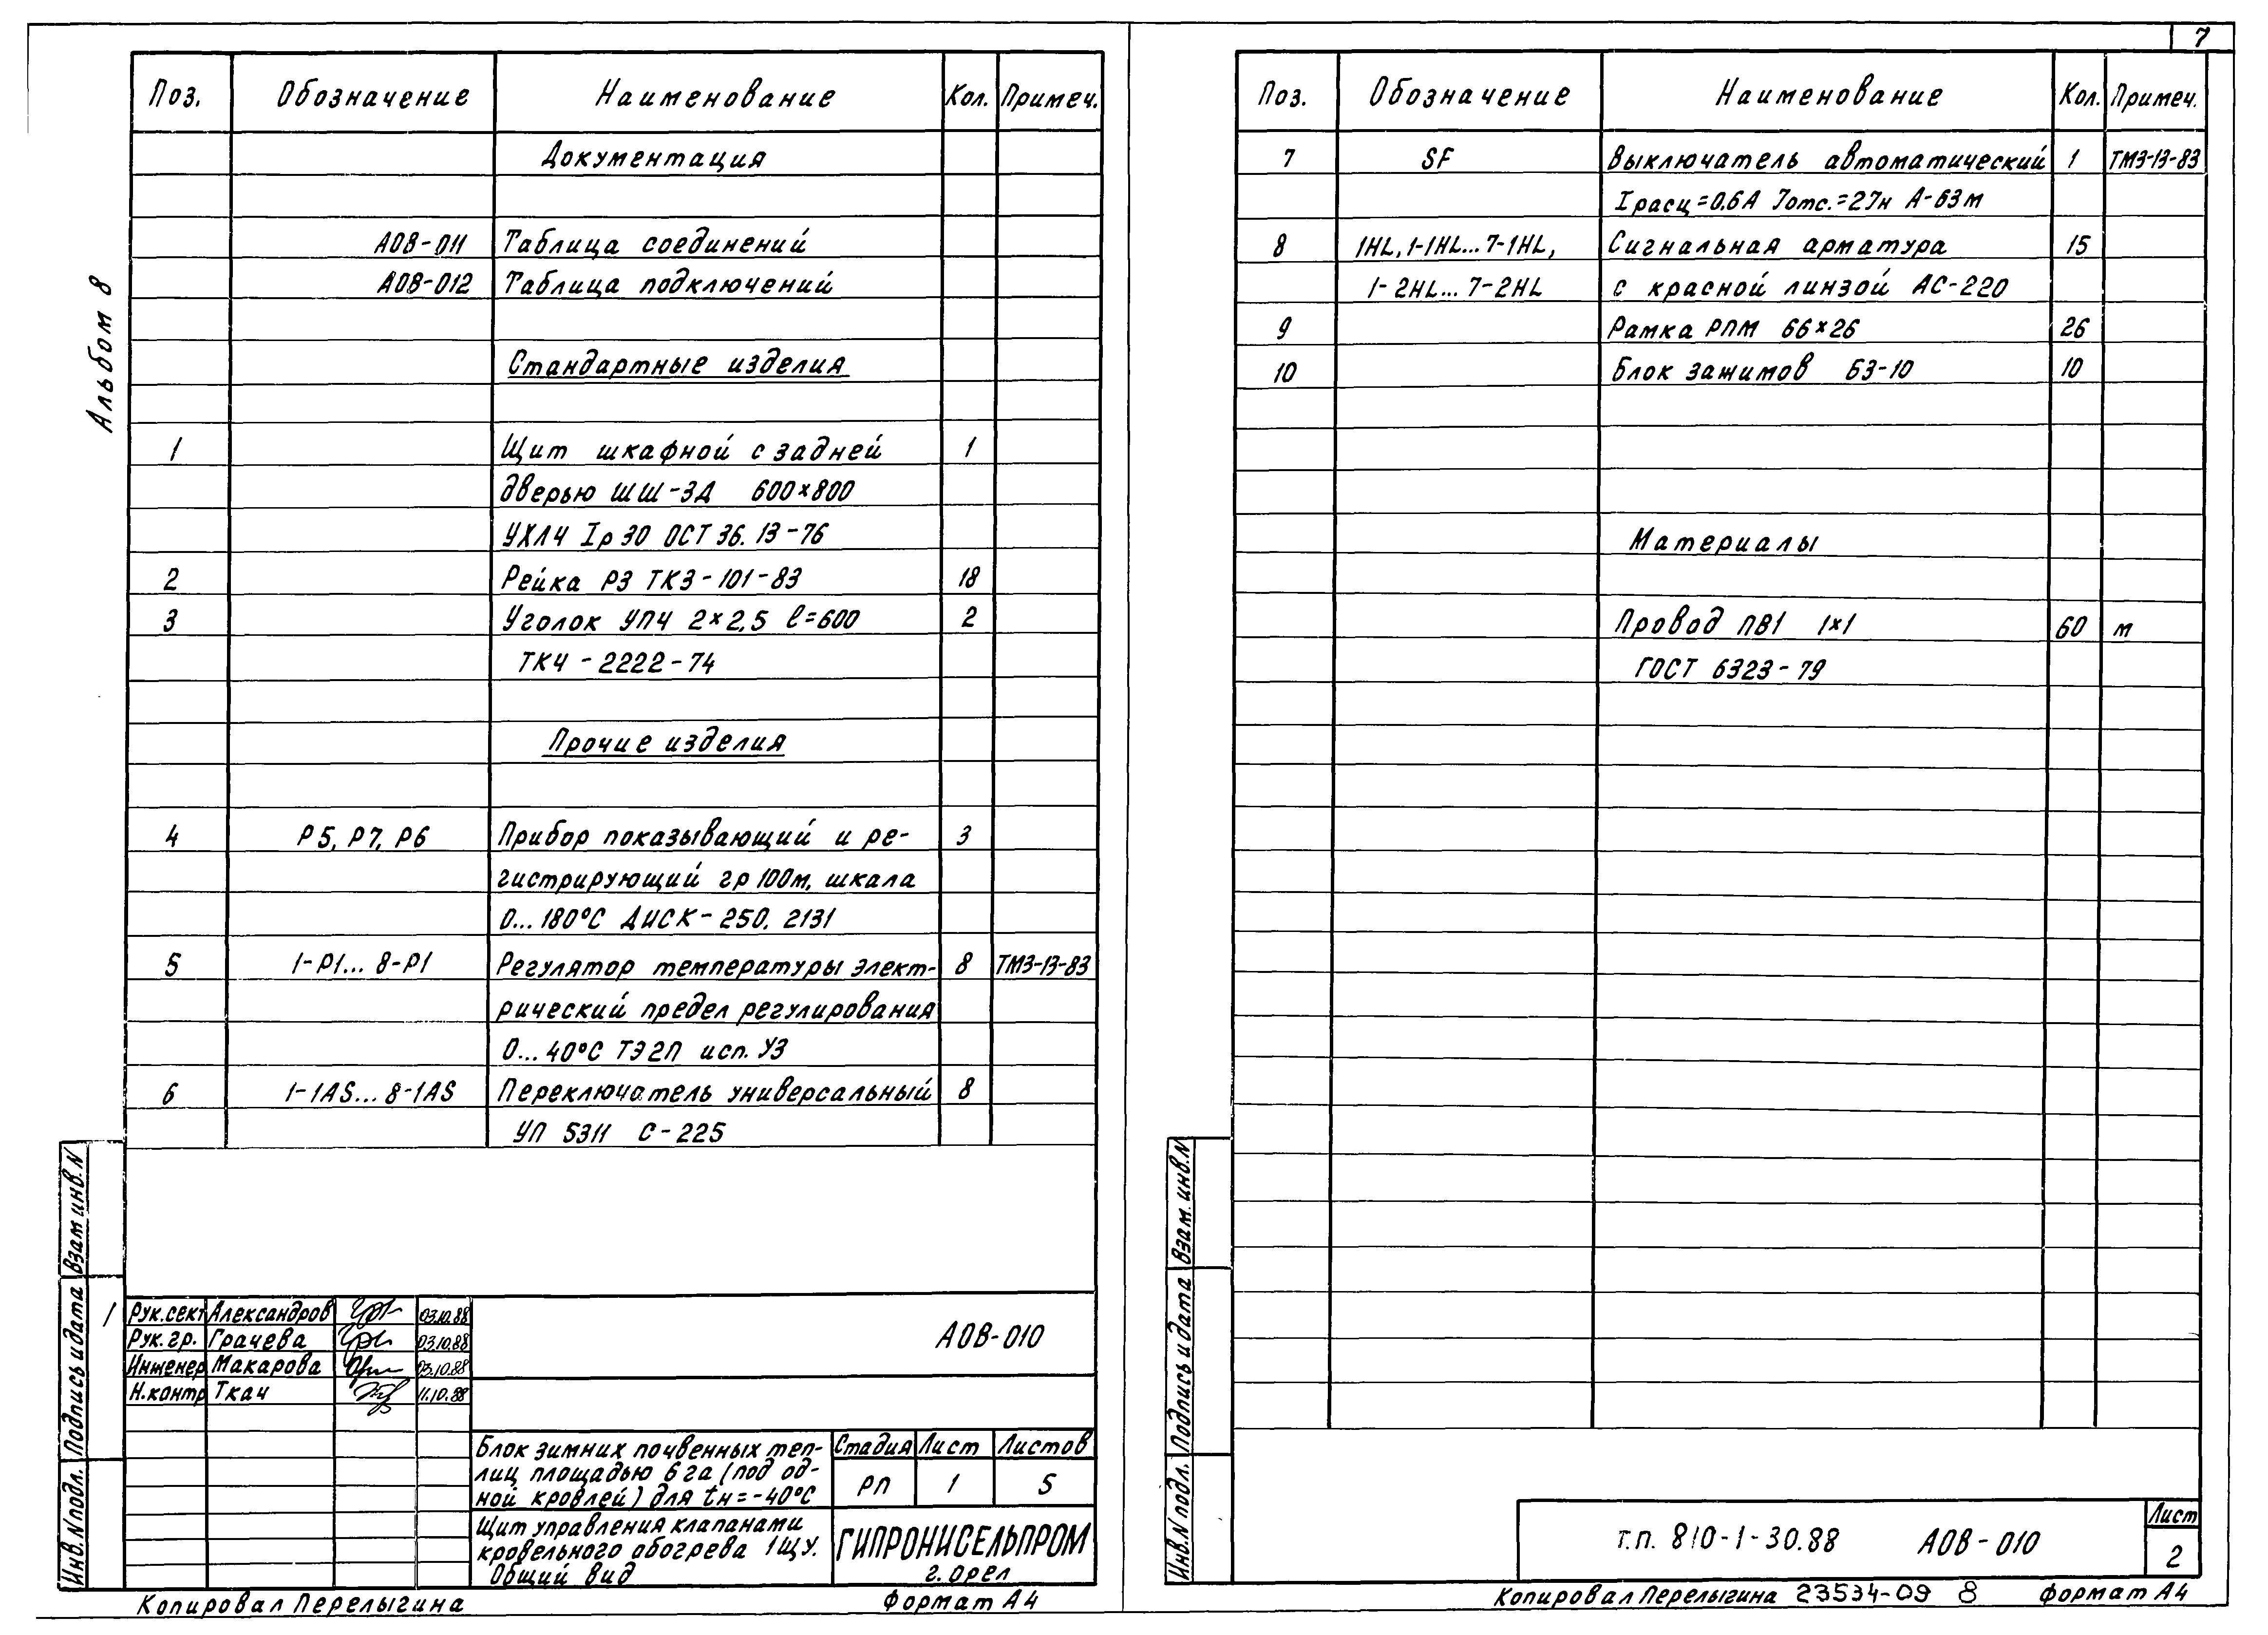 Альбом 8
Поз. Обозначение Наименование Кол. Примеч.
Документация
АОВ-011 Таблица соединений
АОВ-012 Таблица подключений
Стандартные изделия
1 Щит шкафной с задней 1
дверью ШШ-ЗД 600×800
УХЛ4 Iр 30 ОСТ 36.13-76
2 Рейка Р3 ТК3-101-83 18
3 Уголок УП4 2×2,5 l=600 2
ТК4-2222-74
Прочие изделия
4 Р5, Р7, Р6 Прибор показывающий и ре- 3
гистрирующий гр 100м, шкала
0...180°С ДИСК-250, 2131
5 1-Р1...8-Р1 Регулятор температуры элект- 8 ТМ3-13-83
рический предел регулирования
0...40°С ТЭ2П исп. У3
6 1-1AS...8-1AS Переключатель универсальный 8
УП 5311 С-225
Взам инв.N
Подпись и дата
Инв.N подл.
Рук.сект Александров 03.10.88
Рук.гр. Грачева 03.10.88
Инженер Макарова 03.10.88
Н.контр Ткач 11.10.88
АОВ-010
Блок зимних почвенных теп-
лиц площадью 6 га (под од-
ной кровлей) для tн=-40°С
Стадия Лист Листов
РП 1 5
Щит управления клапанами
кровельного обогрева 1ЩУ.
Общий вид
ГИПРОНИСЕЛЬПРОМ
г. Орел
Копировал Перелыгина Формат А4
7
Поз. Обозначение Наименование Кол. Примеч.
7 SF Выключатель автоматический 1 ТМ3-13-83
Iрасц=0,6А Iотс.=2Iн А-63м
8 1HL, 1-1HL...7-1HL, Сигнальная арматура 15
1-2HL...7-2HL с красной линзой АС-220
9 Рамка РПМ 66×26 26
10 Блок зажимов БЗ-10 10
Материалы
Провод ПВ1 1×1 60 м
ГОСТ 6323-79
Взам. инв.N
Подпись и дата
Инв.N подл.
т.п. 810-1-30.88 АОВ-010
Лист
2
Копировал Перелыгина 23534-09 8 Формат А4